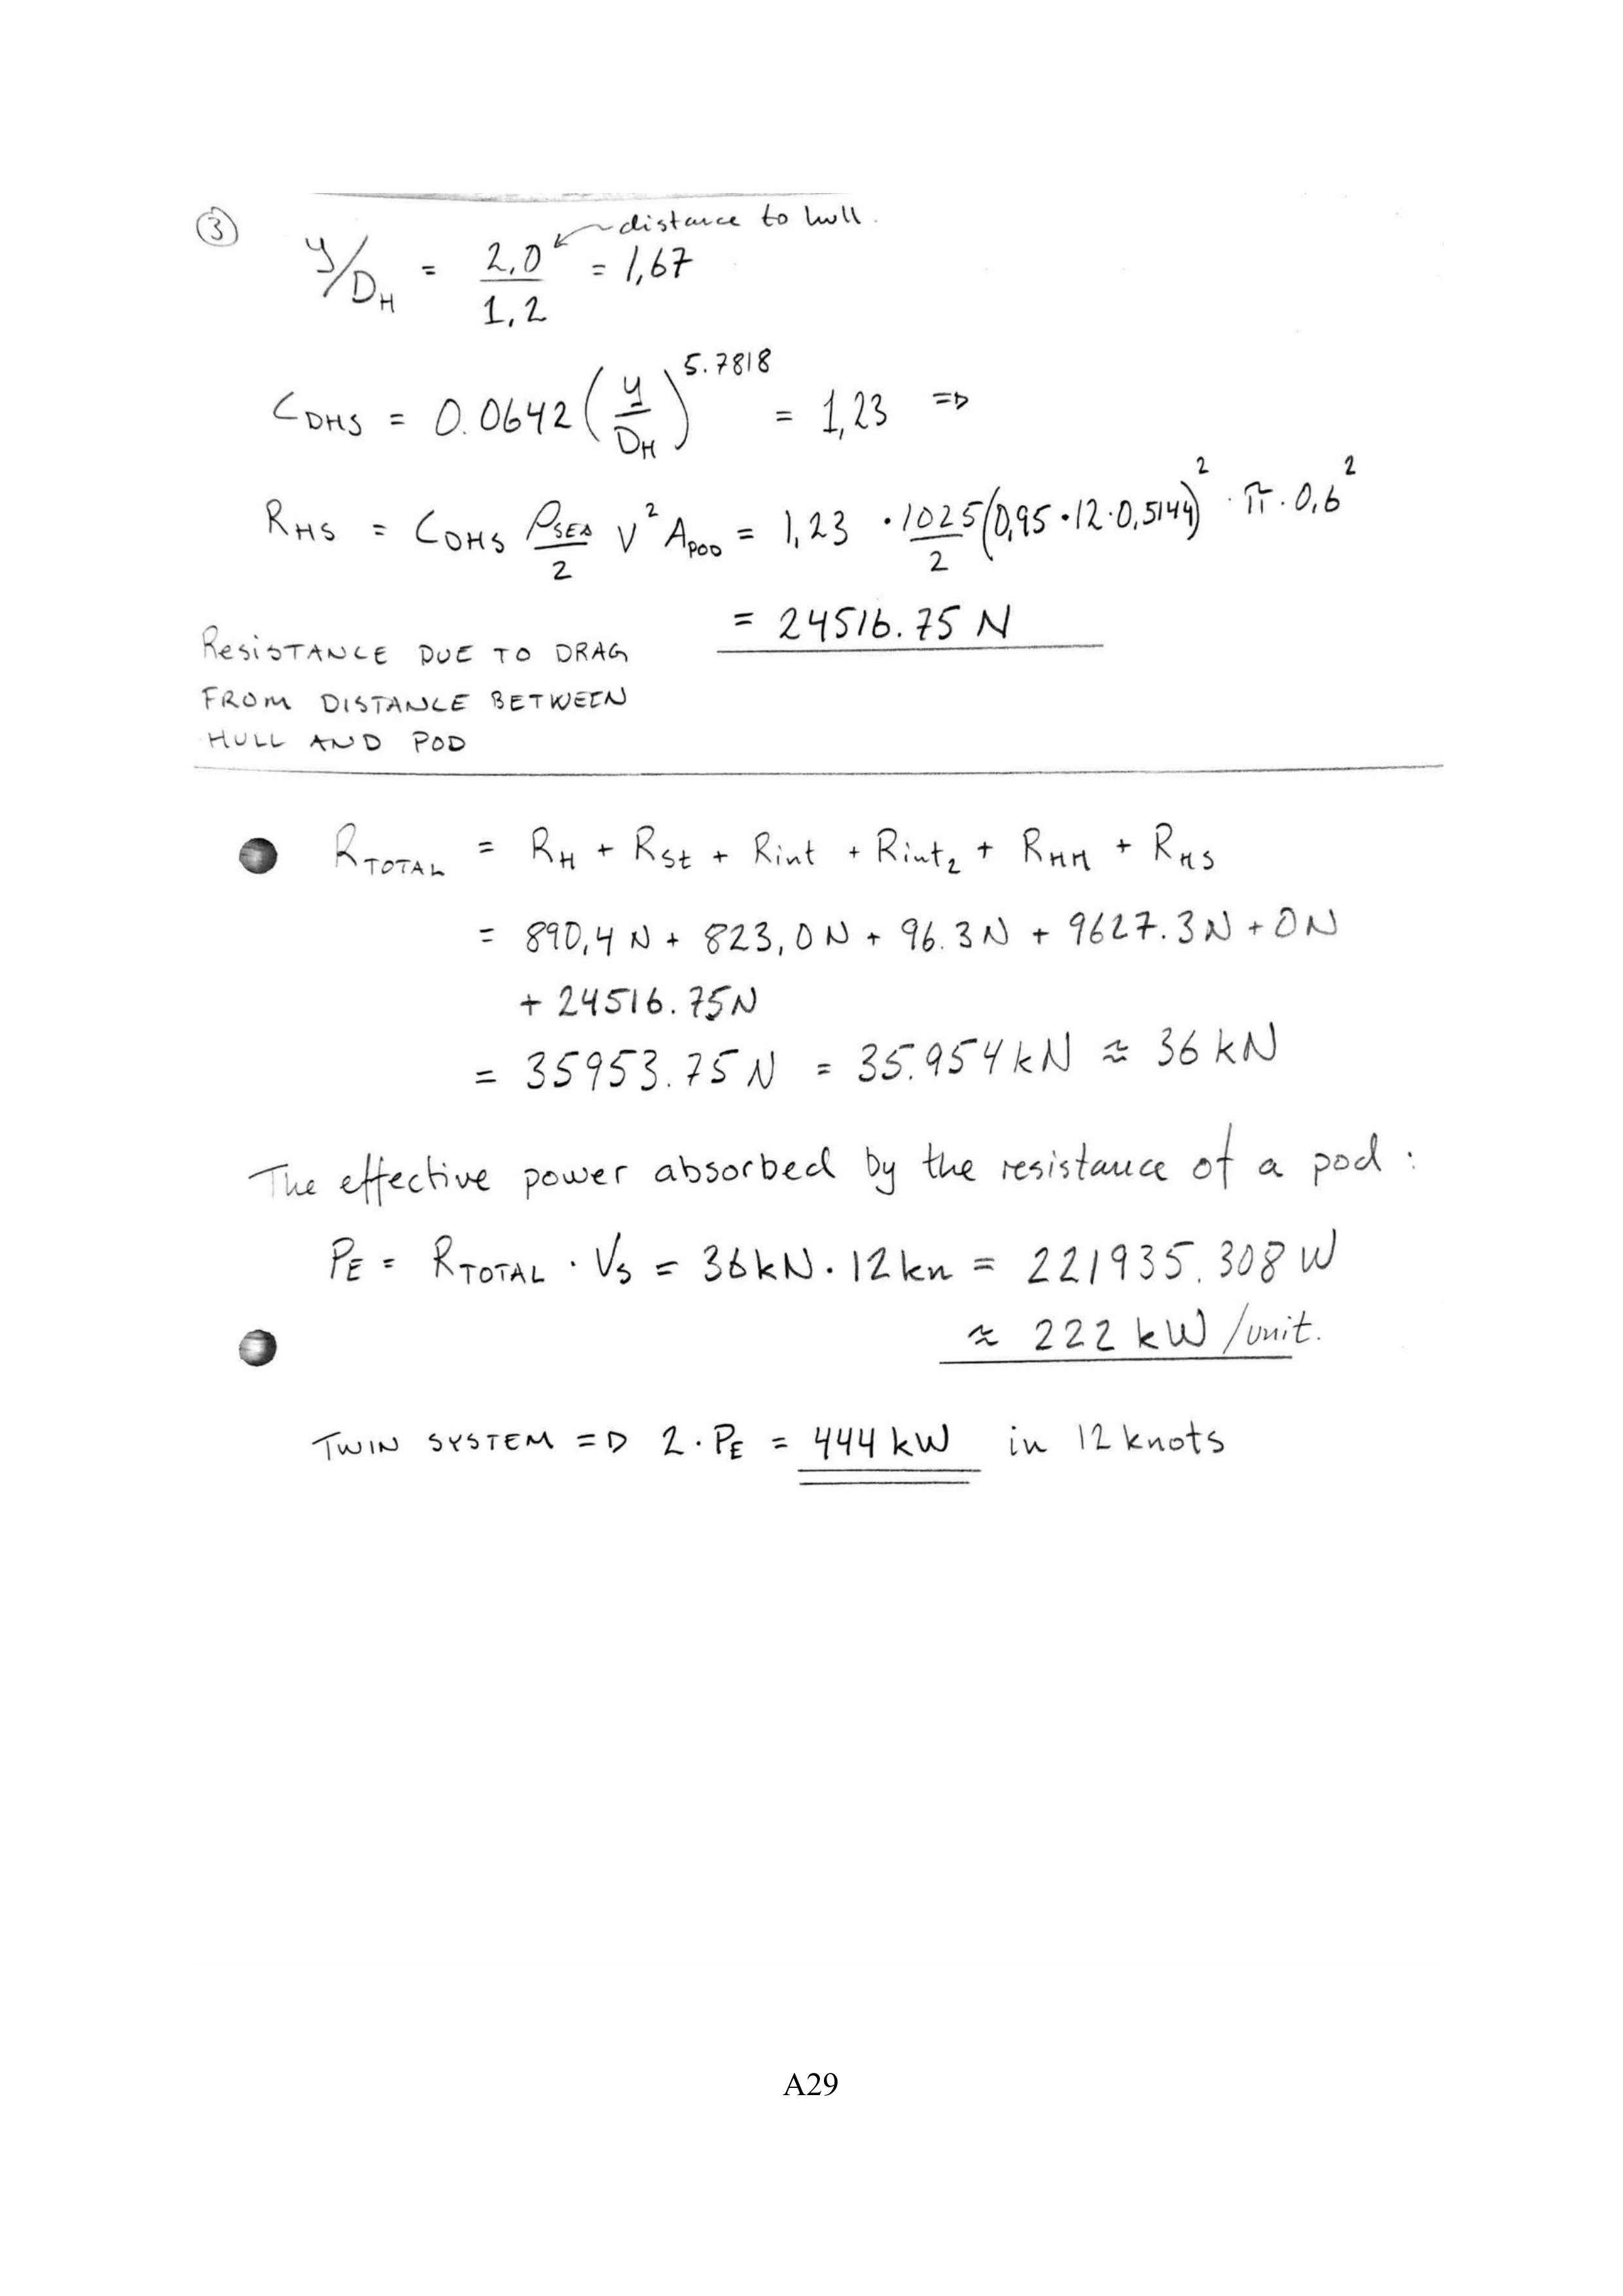 ③
y/D_H = 2,0/1,2 = 1,67 ← distance to hull.
C_DHS = 0.0642 (y/D_H)^5.7818 = 1,23 ⇒
R_HS = C_DHS ρ_SEA/2 V² A_POD = 1,23 · 1025/2 (0,95 · 12 · 0,5144)² · π · 0,6²
= 24516.75 N
RESISTANCE DUE TO DRAG
FROM DISTANCE BETWEEN
HULL AND POD
R_TOTAL = R_H + R_St + Rint + Rint_2 + R_HH + R_HS
= 890,4 N + 823,0 N + 96.3 N + 9627.3 N + 0 N
+ 24516.75 N
= 35953.75 N = 35.954 kN ≈ 36 kN
The effective power absorbed by the resistance of a pod :
P_E = R_TOTAL · V_S = 36 kN · 12 kn = 221935.308 W
≈ 222 kW /unit.
TWIN SYSTEM ⇒ 2 · P_E = 444 kW in 12 knots
A29